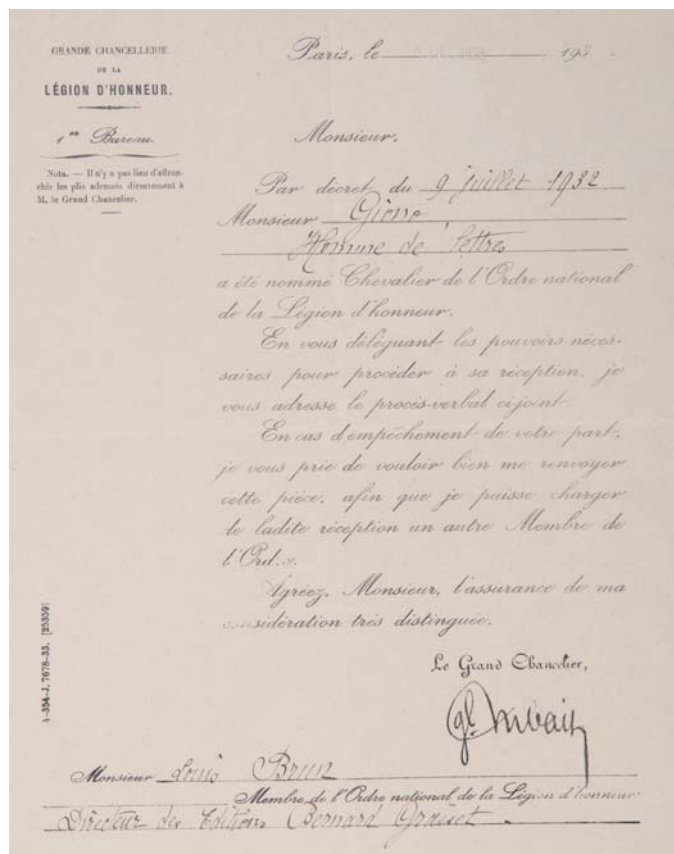 GRANDE CHANCELLERIE
DE LA
LÉGION D'HONNEUR.
1er Bureau.
Nota. — Il n'y a pas lieu d'affran-
chir les plis adressés directement à
M. le Grand Chancelier.
Paris, le 193
Monsieur,
Par décret du 9 juillet 1932
Monsieur Giono,
Homme de lettres
a été nommé Chevalier de l'Ordre national
de la Légion d'honneur.
En vous déléguant les pouvoirs néces-
saires pour procéder à sa réception, je
vous adresse le procès-verbal ci-joint.
En cas d'empêchement de votre part,
je vous prie de vouloir bien me renvoyer
cette pièce, afin que je puisse charger
de ladite réception un autre Membre de
l'Ordre.
Agréez, Monsieur, l'assurance de ma
considération très distinguée.
Le Grand Chancelier,
Monsieur Louis Brun
Membre de l'Ordre national de la Légion d'honneur
Directeur des Editions Bernard Grasset.
4-354-J. 7678-33. [25359]